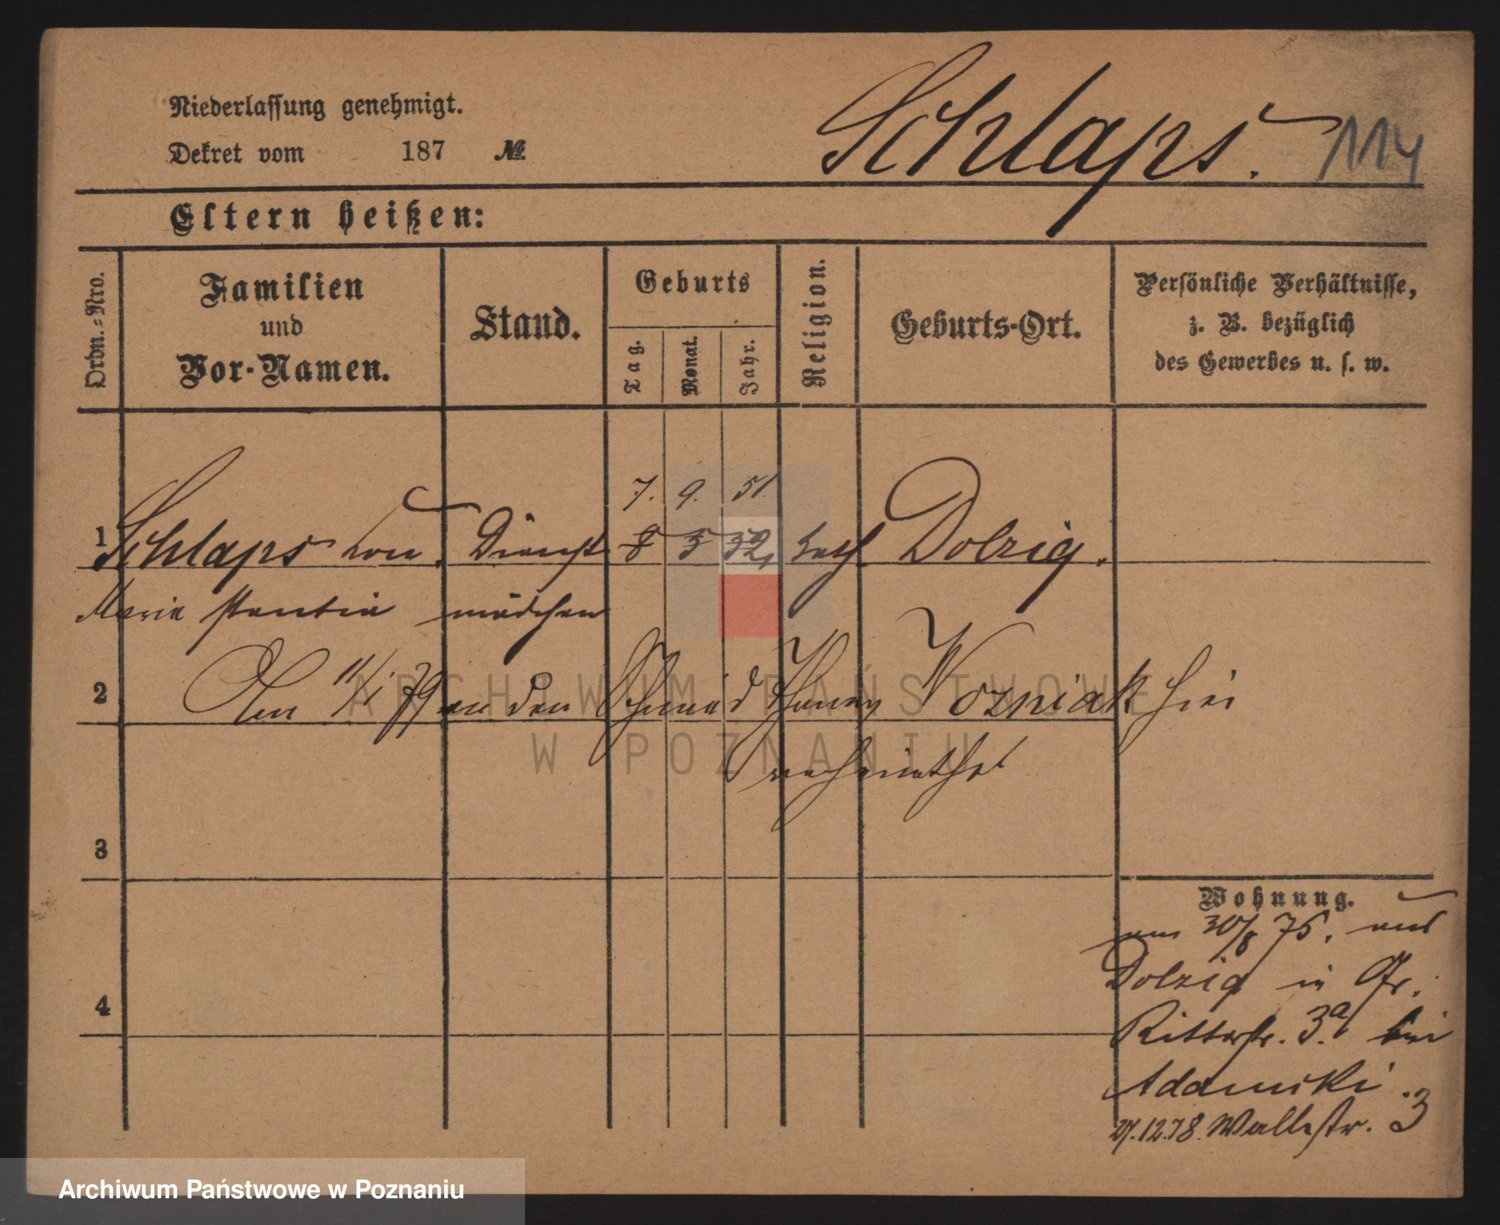 Niederlassung genehmigt.
Dekret vom 187 №
Schlaps. 114
Eltern heißen:
Ordn.-Nro.
Familien
und
Vor-Namen.
Stand.
Geburts
Tag.
Monat.
Jahr.
Religion.
Geburts-Ort.
Persönliche Verhältnisse,
z. B. bezüglich
des Gewerbes u. s. w.
7. 9. 51.
1 Schlaps Dienst 8 5 52, kath. Dolzig.
Maria mädchen
2 Am 11/1 79 an den Schmied Wozniak hier
verheirathet
3
4
Wohnung.
am 30/8 75. aus
Dolzig in Gr.
Ritterstr. 3.a bei
Adamski
27.12.78. Wallstr. 3
ARCHIWUM PAŃSTWOWE
W POZNANIU
Archiwum Państwowe w Poznaniu